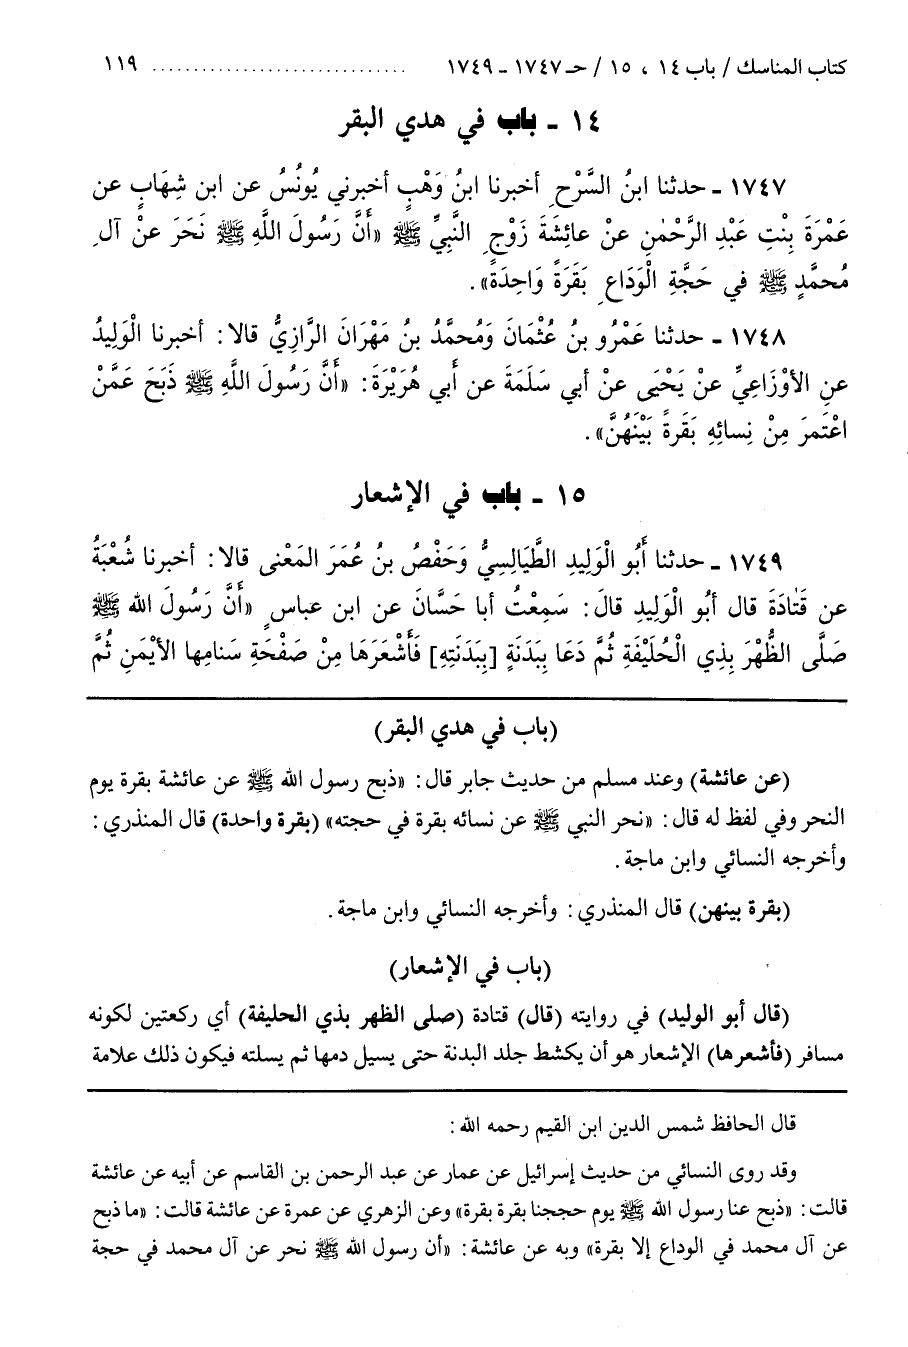 كتاب المناسك / باب ١٤ ، ١٥ / حـ ١٧٤٧ - ١٧٤٩ .............................. ١١٩
١٤ - باب في هدي البقر
١٧٤٧ - حدثنا ابنُ السَّرْحِ أخبرنا ابنُ وَهْبٍ أخبرني يُونُسُ عن ابن شِهَابٍ عن
عَمْرَةَ بِنْتِ عَبْدِ الرَّحْمٰنِ عنْ عائِشَةَ زَوْجِ النَّبِيِّ ﷺ «أَنَّ رَسُولَ اللَّهِ ﷺ نَحَرَ عنْ آلِ
مُحمَّدٍ ﷺ في حَجَّةِ الْوَدَاعِ بَقَرَةً وَاحِدَةً».
١٧٤٨ - حدثنا عَمْرُو بنُ عُثْمانَ وَمُحمَّدُ بنُ مَهْرَانَ الرَّازِيُّ قالا: أخبرنا الْوَلِيدُ
عنِ الأوْزَاعِيِّ عنْ يَحْيَى عنْ أبي سَلَمَةَ عن أَبي هُرَيْرَةَ: «أنَّ رَسُولَ اللَّهِ ﷺ ذَبَحَ عَمَّنْ
اعْتَمَرَ مِنْ نِسائِهِ بَقَرةً بَيْنَهُنَّ».
١٥ - باب في الإشعار
١٧٤٩ - حدثنا أَبُو الْوَلِيدِ الطَّيَالِسِيُّ وَحَفْصُ بنُ عُمَرَ المَعْنى قالا: أخبرنا شُعْبَةُ
عن قَتَادَةَ قال أبُو الْوَلِيدِ قالَ: سَمِعْتُ أبا حَسَّانَ عن ابن عباسٍ «أنَّ رَسُولَ الله ﷺ
صَلَّى الظُّهْرَ بِذِي الْحُلَيْفَةِ ثُمَّ دَعَا بِبَدَنَةٍ [بِبَدَنَتِهِ] فَأَشْعَرَهَا مِنْ صَفْحَةِ سَنامِها الأيْمَنِ ثُمَّ
(باب في هدي البقر)
(عن عائشة) وعند مسلم من حديث جابر قال: «ذبح رسول الله ﷺ عن عائشة بقرة يوم
النحر وفي لفظ له قال: «نحر النبي ﷺ عن نسائه بقرة في حجته» (بقرة واحدة) قال المنذري:
وأخرجه النسائي وابن ماجة.
(بقرة بينهن) قال المنذري: وأخرجه النسائي وابن ماجة.
(باب في الإشعار)
(قال أبو الوليد) في روايته (قال) قتادة (صلى الظهر بذي الحليفة) أي ركعتين لكونه
مسافر (فأشعرها) الإشعار هو أن يكشط جلد البدنة حتى يسيل دمها ثم يسلته فيكون ذلك علامة
قال الحافظ شمس الدين ابن القيم رحمه الله:
وقد روى النسائي من حديث إسرائيل عن عمار عن عبد الرحمن بن القاسم عن أبيه عن عائشة
قالت: «ذبح عنا رسول الله ﷺ يوم حججنا بقرة بقرة» وعن الزهري عن عمرة عن عائشة قالت: «ما ذبح
عن آل محمد في الوداع إلا بقرة» وبه عن عائشة: «أن رسول الله ﷺ نحر عن آل محمد في حجة